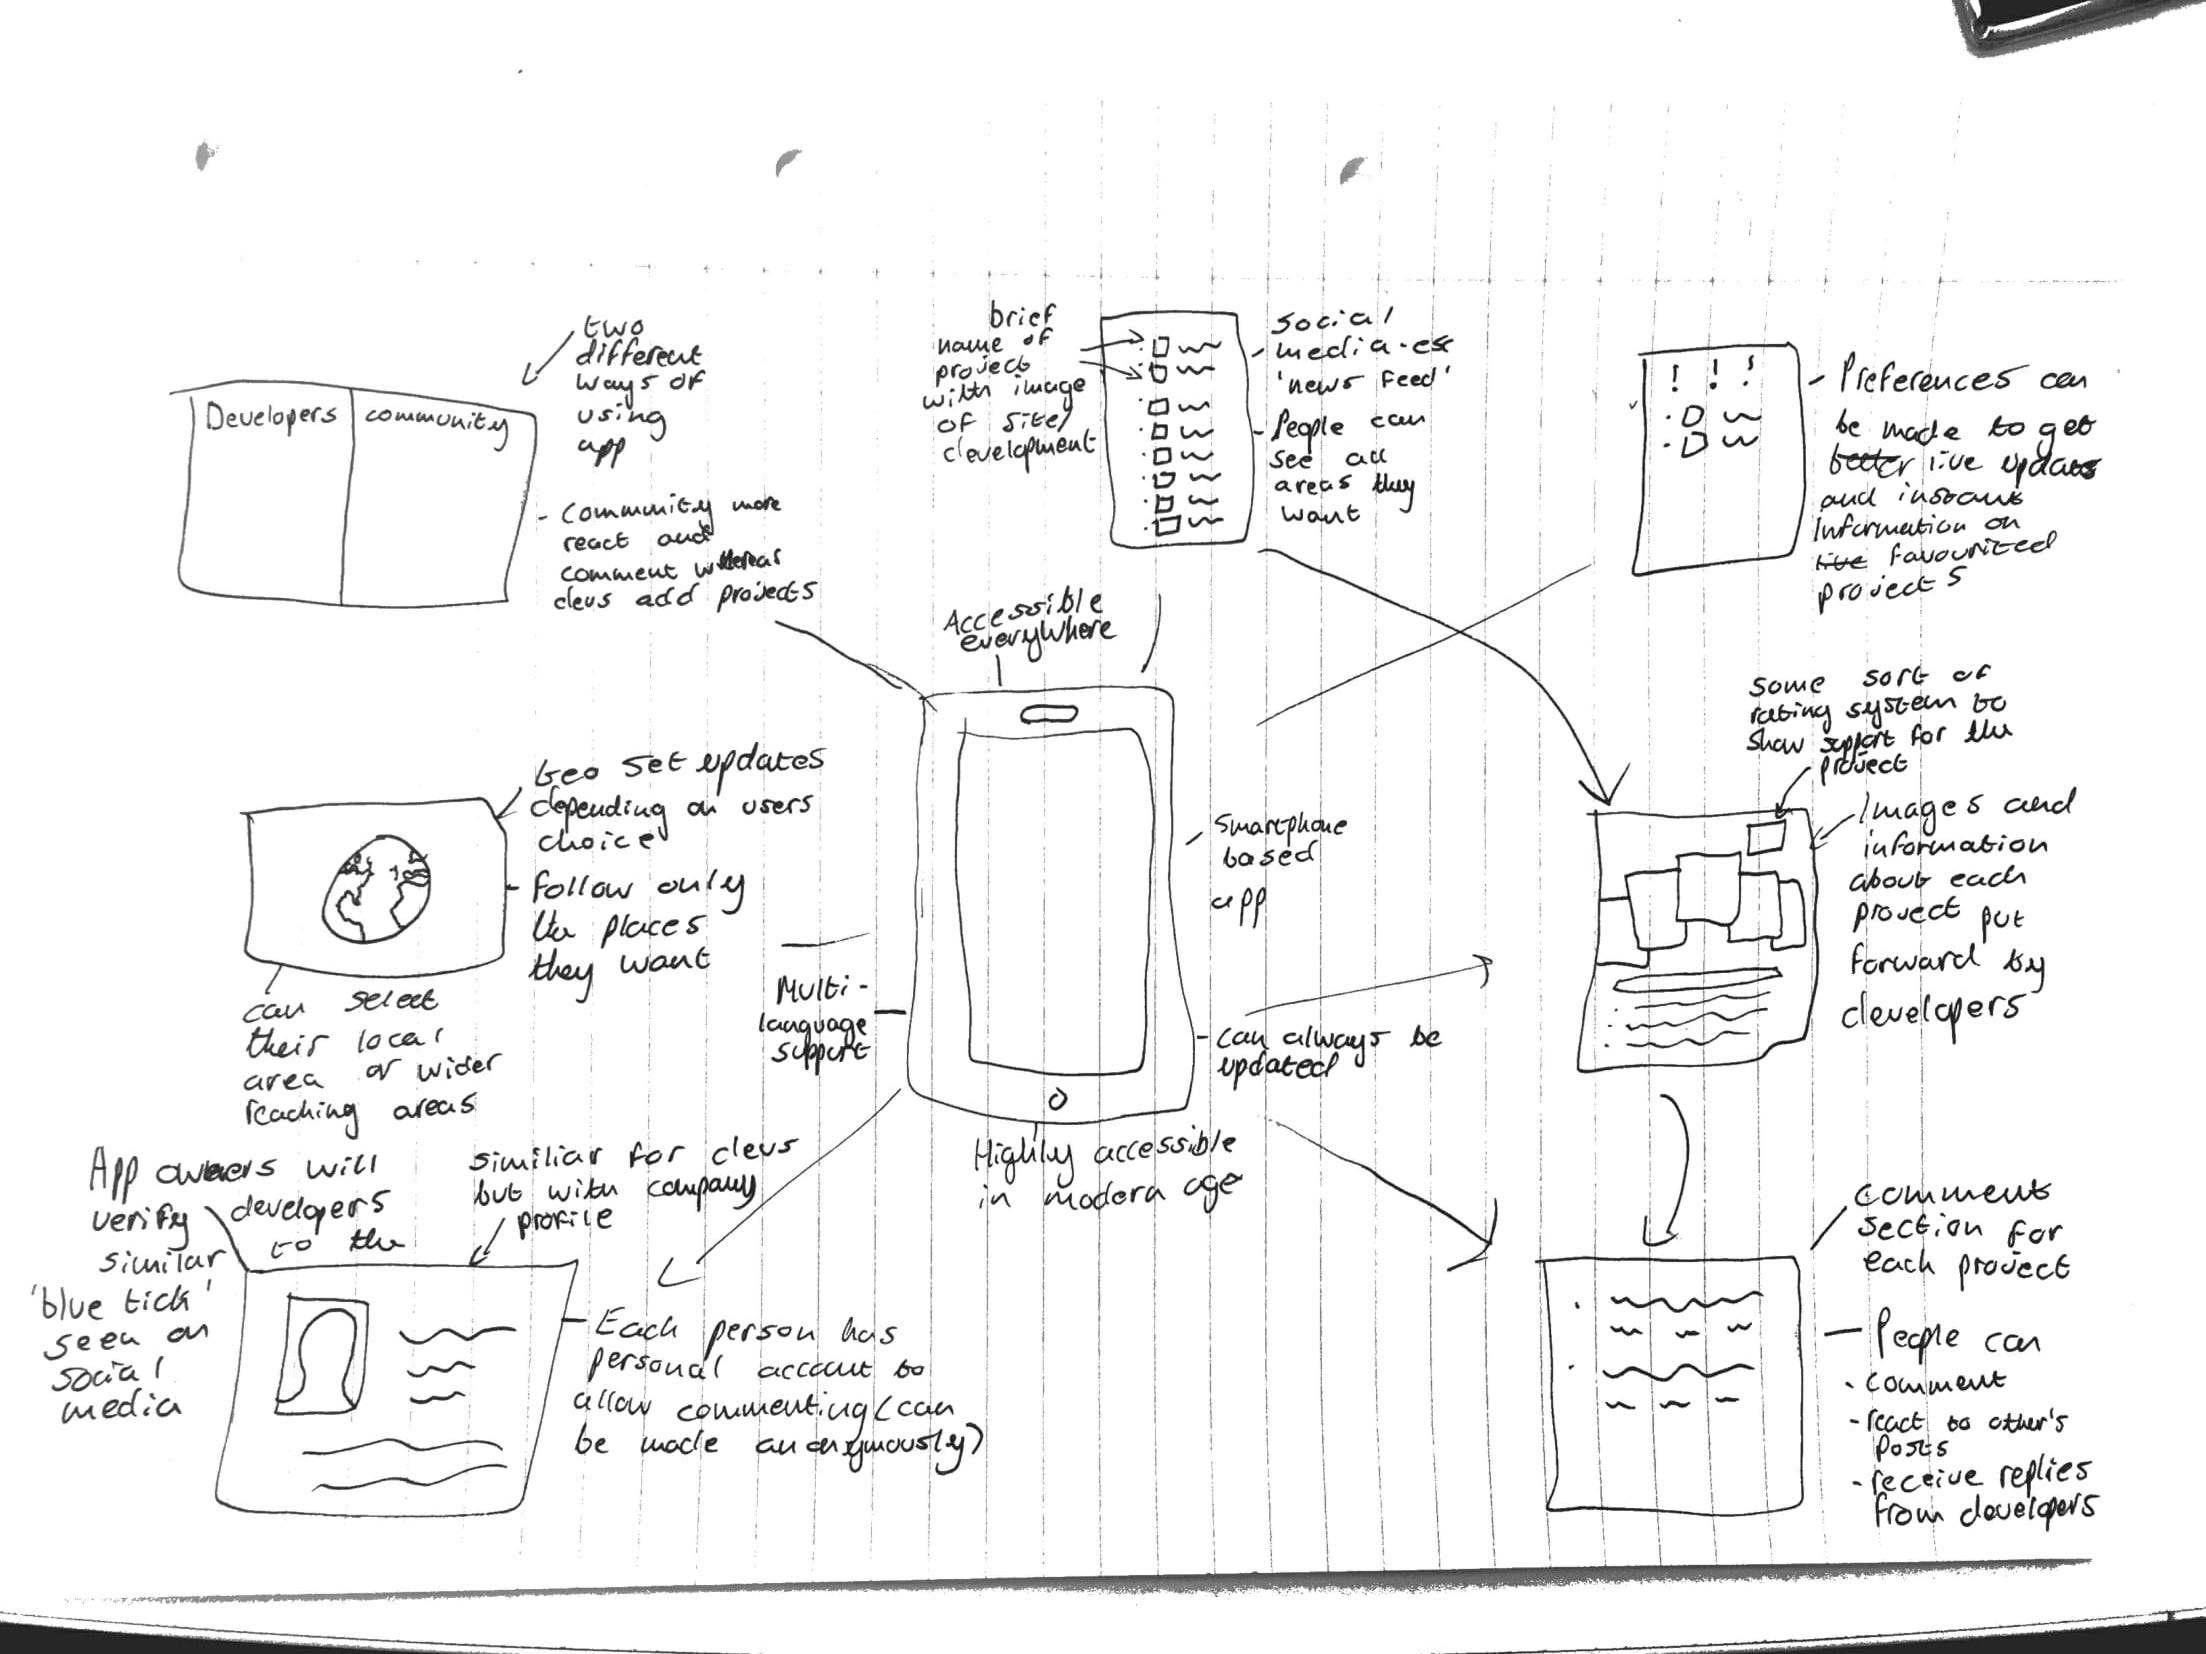 two
different
ways of
using
app
Developers
community
- Community more
react and
comment whereas
devs add projects
brief
name of
project
with image
of site/
development
Social
- media-esc
'news feed'
- People can
see all
areas they
want
! ! !
- Preferences can
be made to get
better live updates
and instant
Information on
live favourited
projects
Accessible
everywhere
Smartphone
based
app
- can always be
updated
Highly accessible
in modern age
Multi-
language
support
Geo set updates
depending on users
choice
- Follow only
the places
they want
can select
their local
area or wider
reaching areas
some sort of
rating system to
show support for the
project
Images and
information
about each
project put
forward by
developers
App owners will
verify developers
to the
similar
'blue tick'
seen on
social
media
similiar for devs
but with company
profile
- Each person has
personal account to
allow commenting (can
be made anonymously)
comment
section for
each project
- People can
- comment
- react to other's
posts
- receive replies
from developers